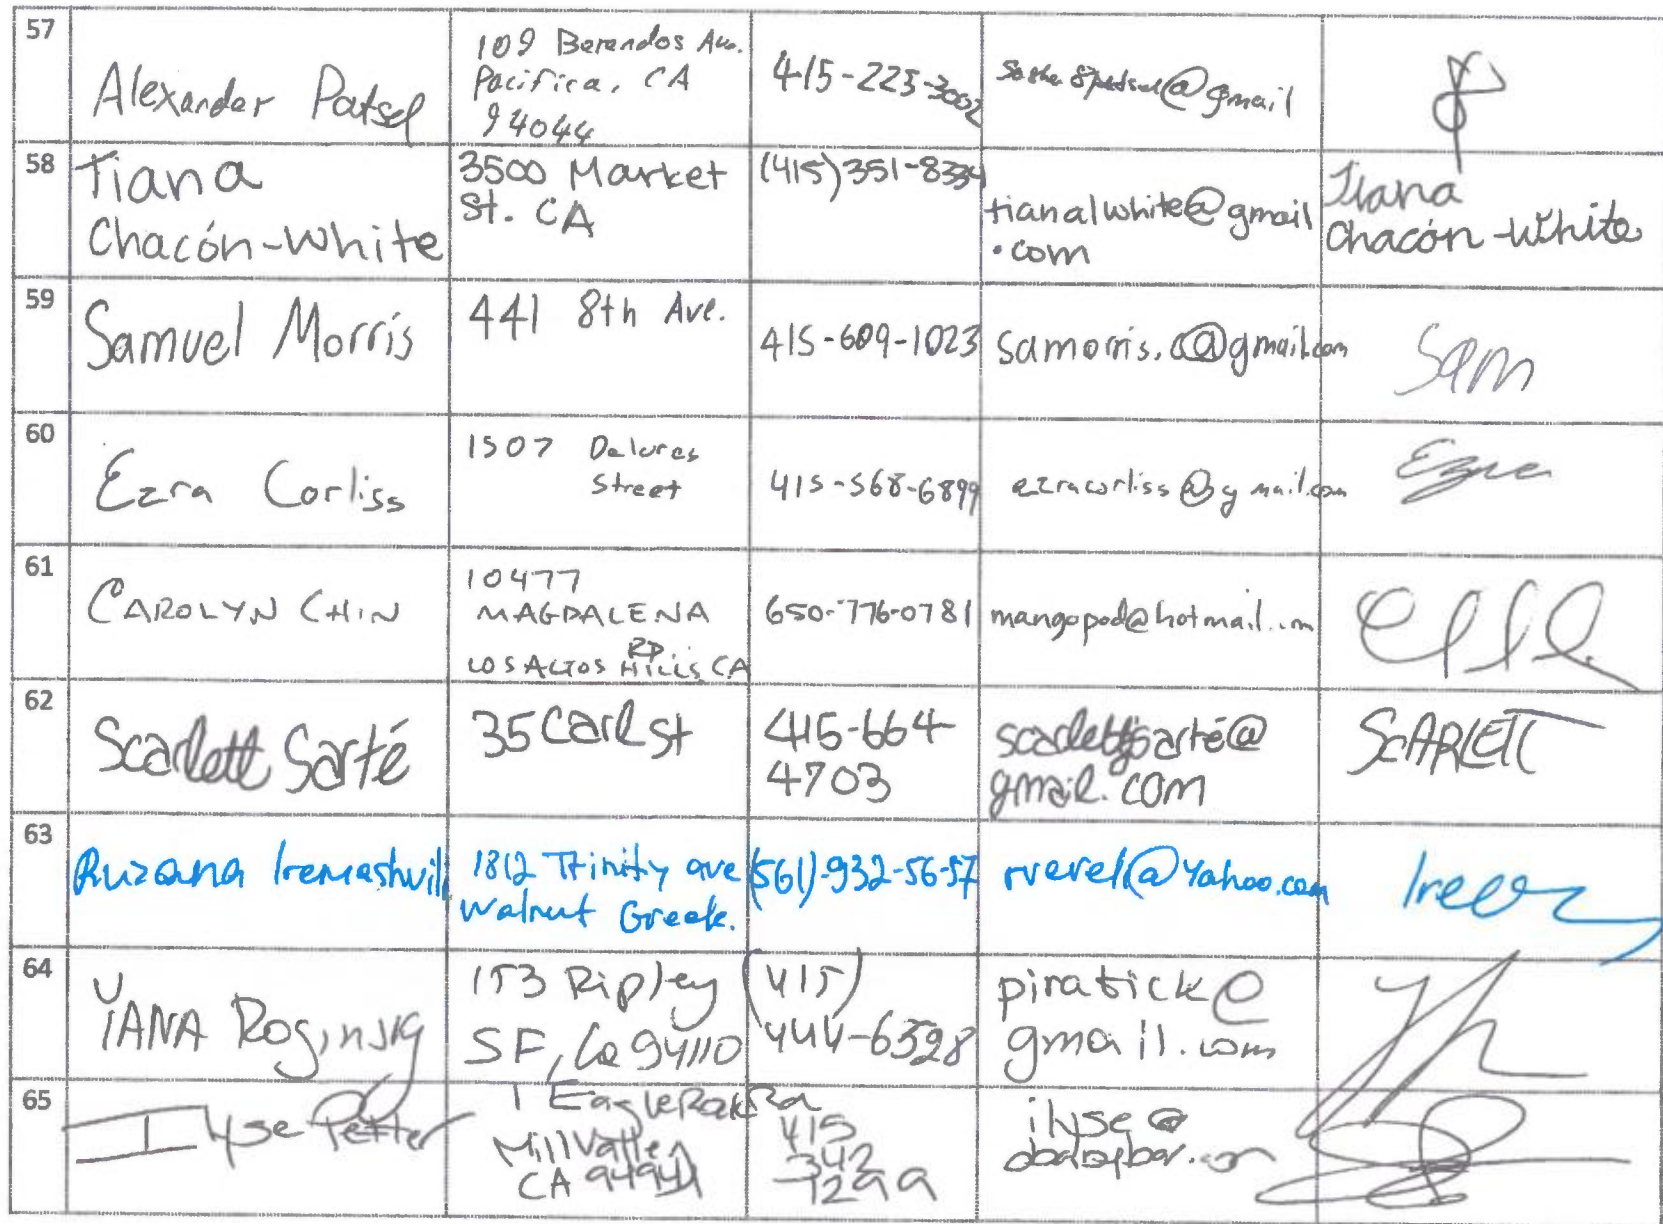 57
Alexander Patsel
109 Berendos Ave.
Pacifica, CA
94044
415-225-3002
@gmail
58
Tiana
Chacón-White
3500 Market
St. CA
(415)351-8334
tianalwhite@gmail
.com
Tiana
Chacón-White
59
Samuel Morris
441 8th Ave.
415-609-1023
samorris.c@gmail.com
Sam
60
Ezra Corliss
1507 Dolores
Street
415-568-6899
ezracorliss@gmail.com
Ezra
61
CAROLYN CHIN
10477
MAGDALENA
RD.
LOS ALTOS HILLS, CA
650-776-0781
mangopod@hotmail
62
Scarlett Sarté
35 Carl St
415-664
4703
scarlettsarté@
gmail.com
SCARLETT
63
Ruzanna Iremashvili
1812 Trinity ave
Walnut Greek.
(561)-932-56-57
rverel@Yahoo.com
64
YANA Roginsky
153 Ripley
SF, Ca 94110
(415)
444-6528
piratick@
gmail.com
65
Ilyse Petter
1 Eagle Rock Rd
Mill Valley
CA 94941
415
342
1299
ilyse@